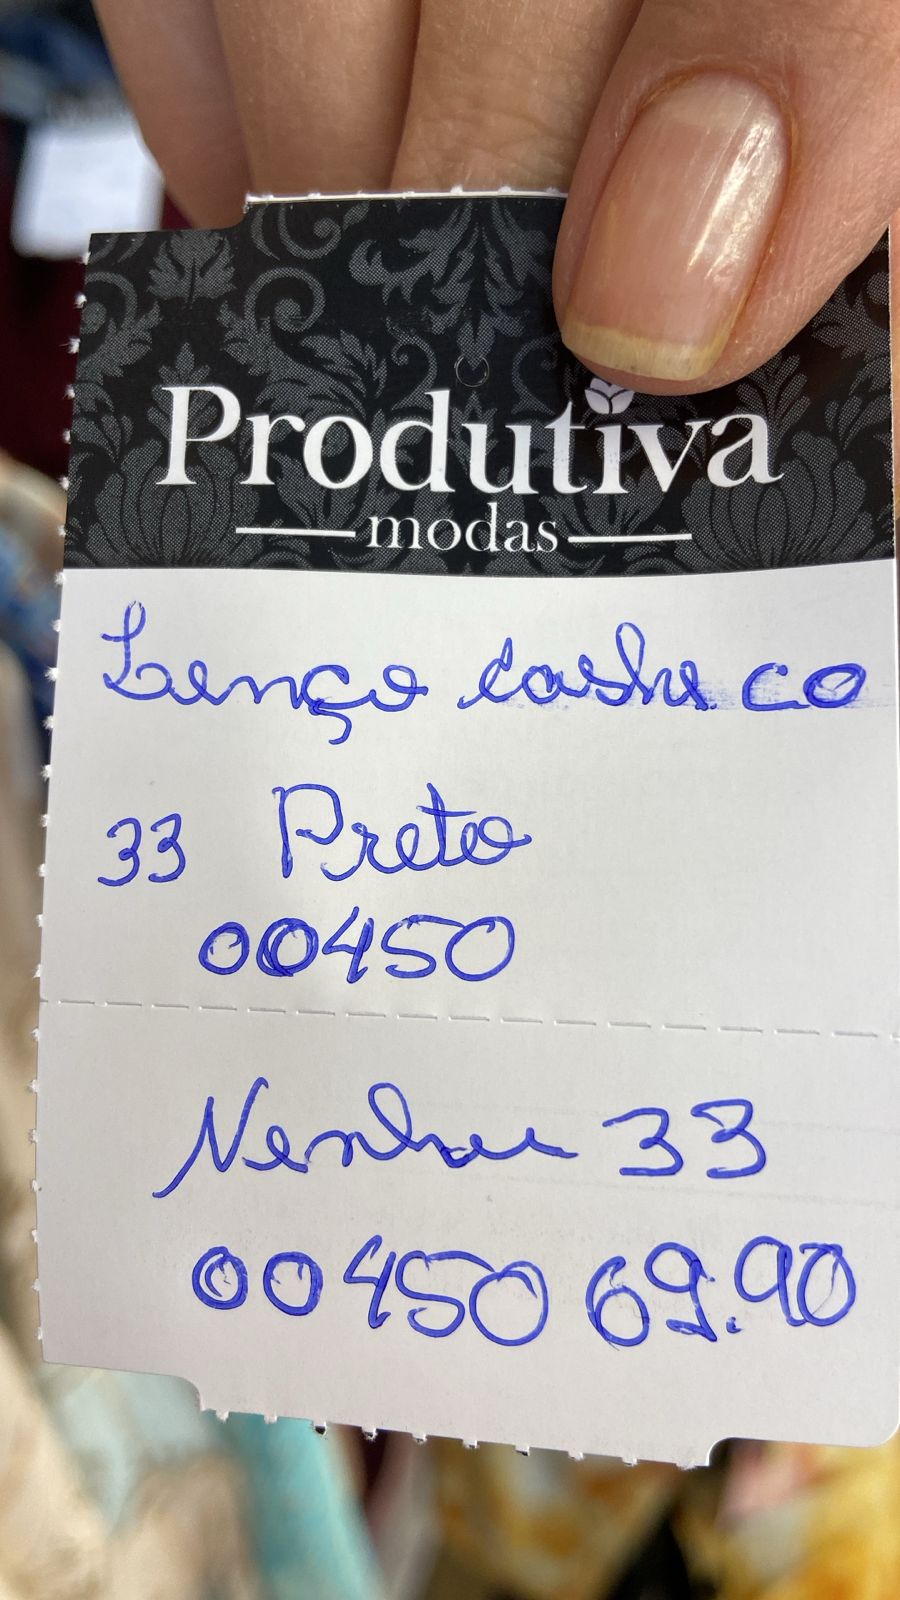 Produtiva
modas
Lenço cashe.co
33 Preto
00450
33
00450 69.90